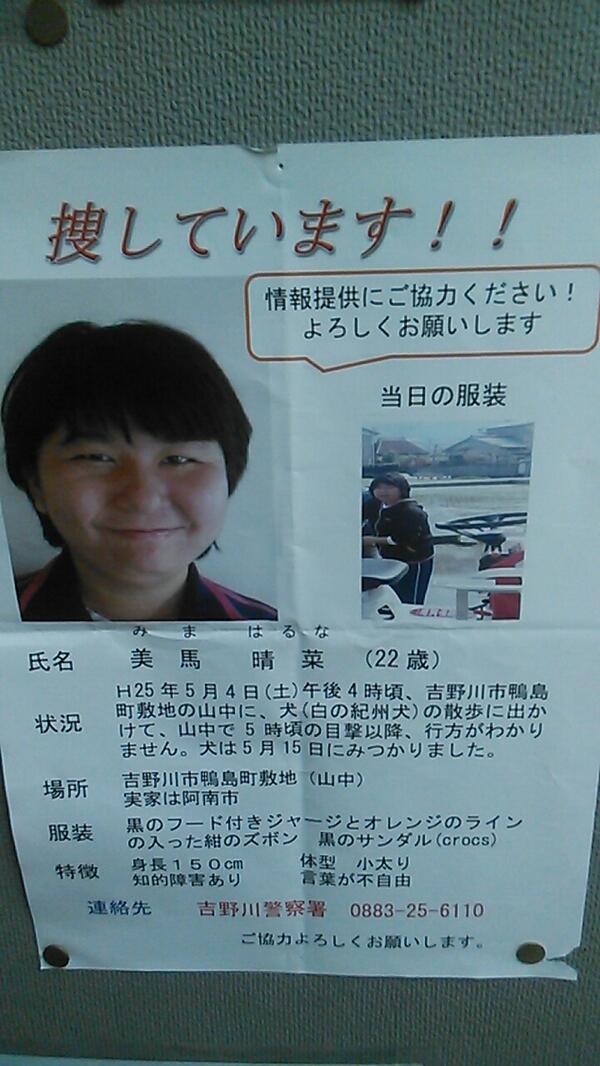 捜しています！！
情報提供にご協力ください！
よろしくお願いします
当日の服装
みま はるな
氏名 美馬 晴菜 （22歳）
状況 H25年5月4日(土)午後4時頃、吉野川市鴨島
町敷地の山中に、犬(白の紀州犬)の散歩に出か
けて、山中で5時頃の目撃以降、行方がわかり
ません。犬は5月15日にみつかりました。
場所 吉野川市鴨島町敷地（山中）
実家は阿南市
服装 黒のフード付きジャージとオレンジのライン
の入った紺のズボン 黒のサンダル(crocs)
特徴 身長１５０㎝ 体型 小太り
知的障害あり 言葉が不自由
連絡先 吉野川警察署 0883-25-6110
ご協力よろしくお願いします。